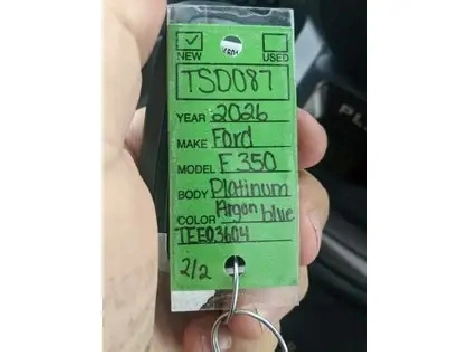 NEW USED
TSD087
YEAR 2026
MAKE Ford
MODEL F350
BODY Platinum
COLOR Argon blue
TEE03604
2/2